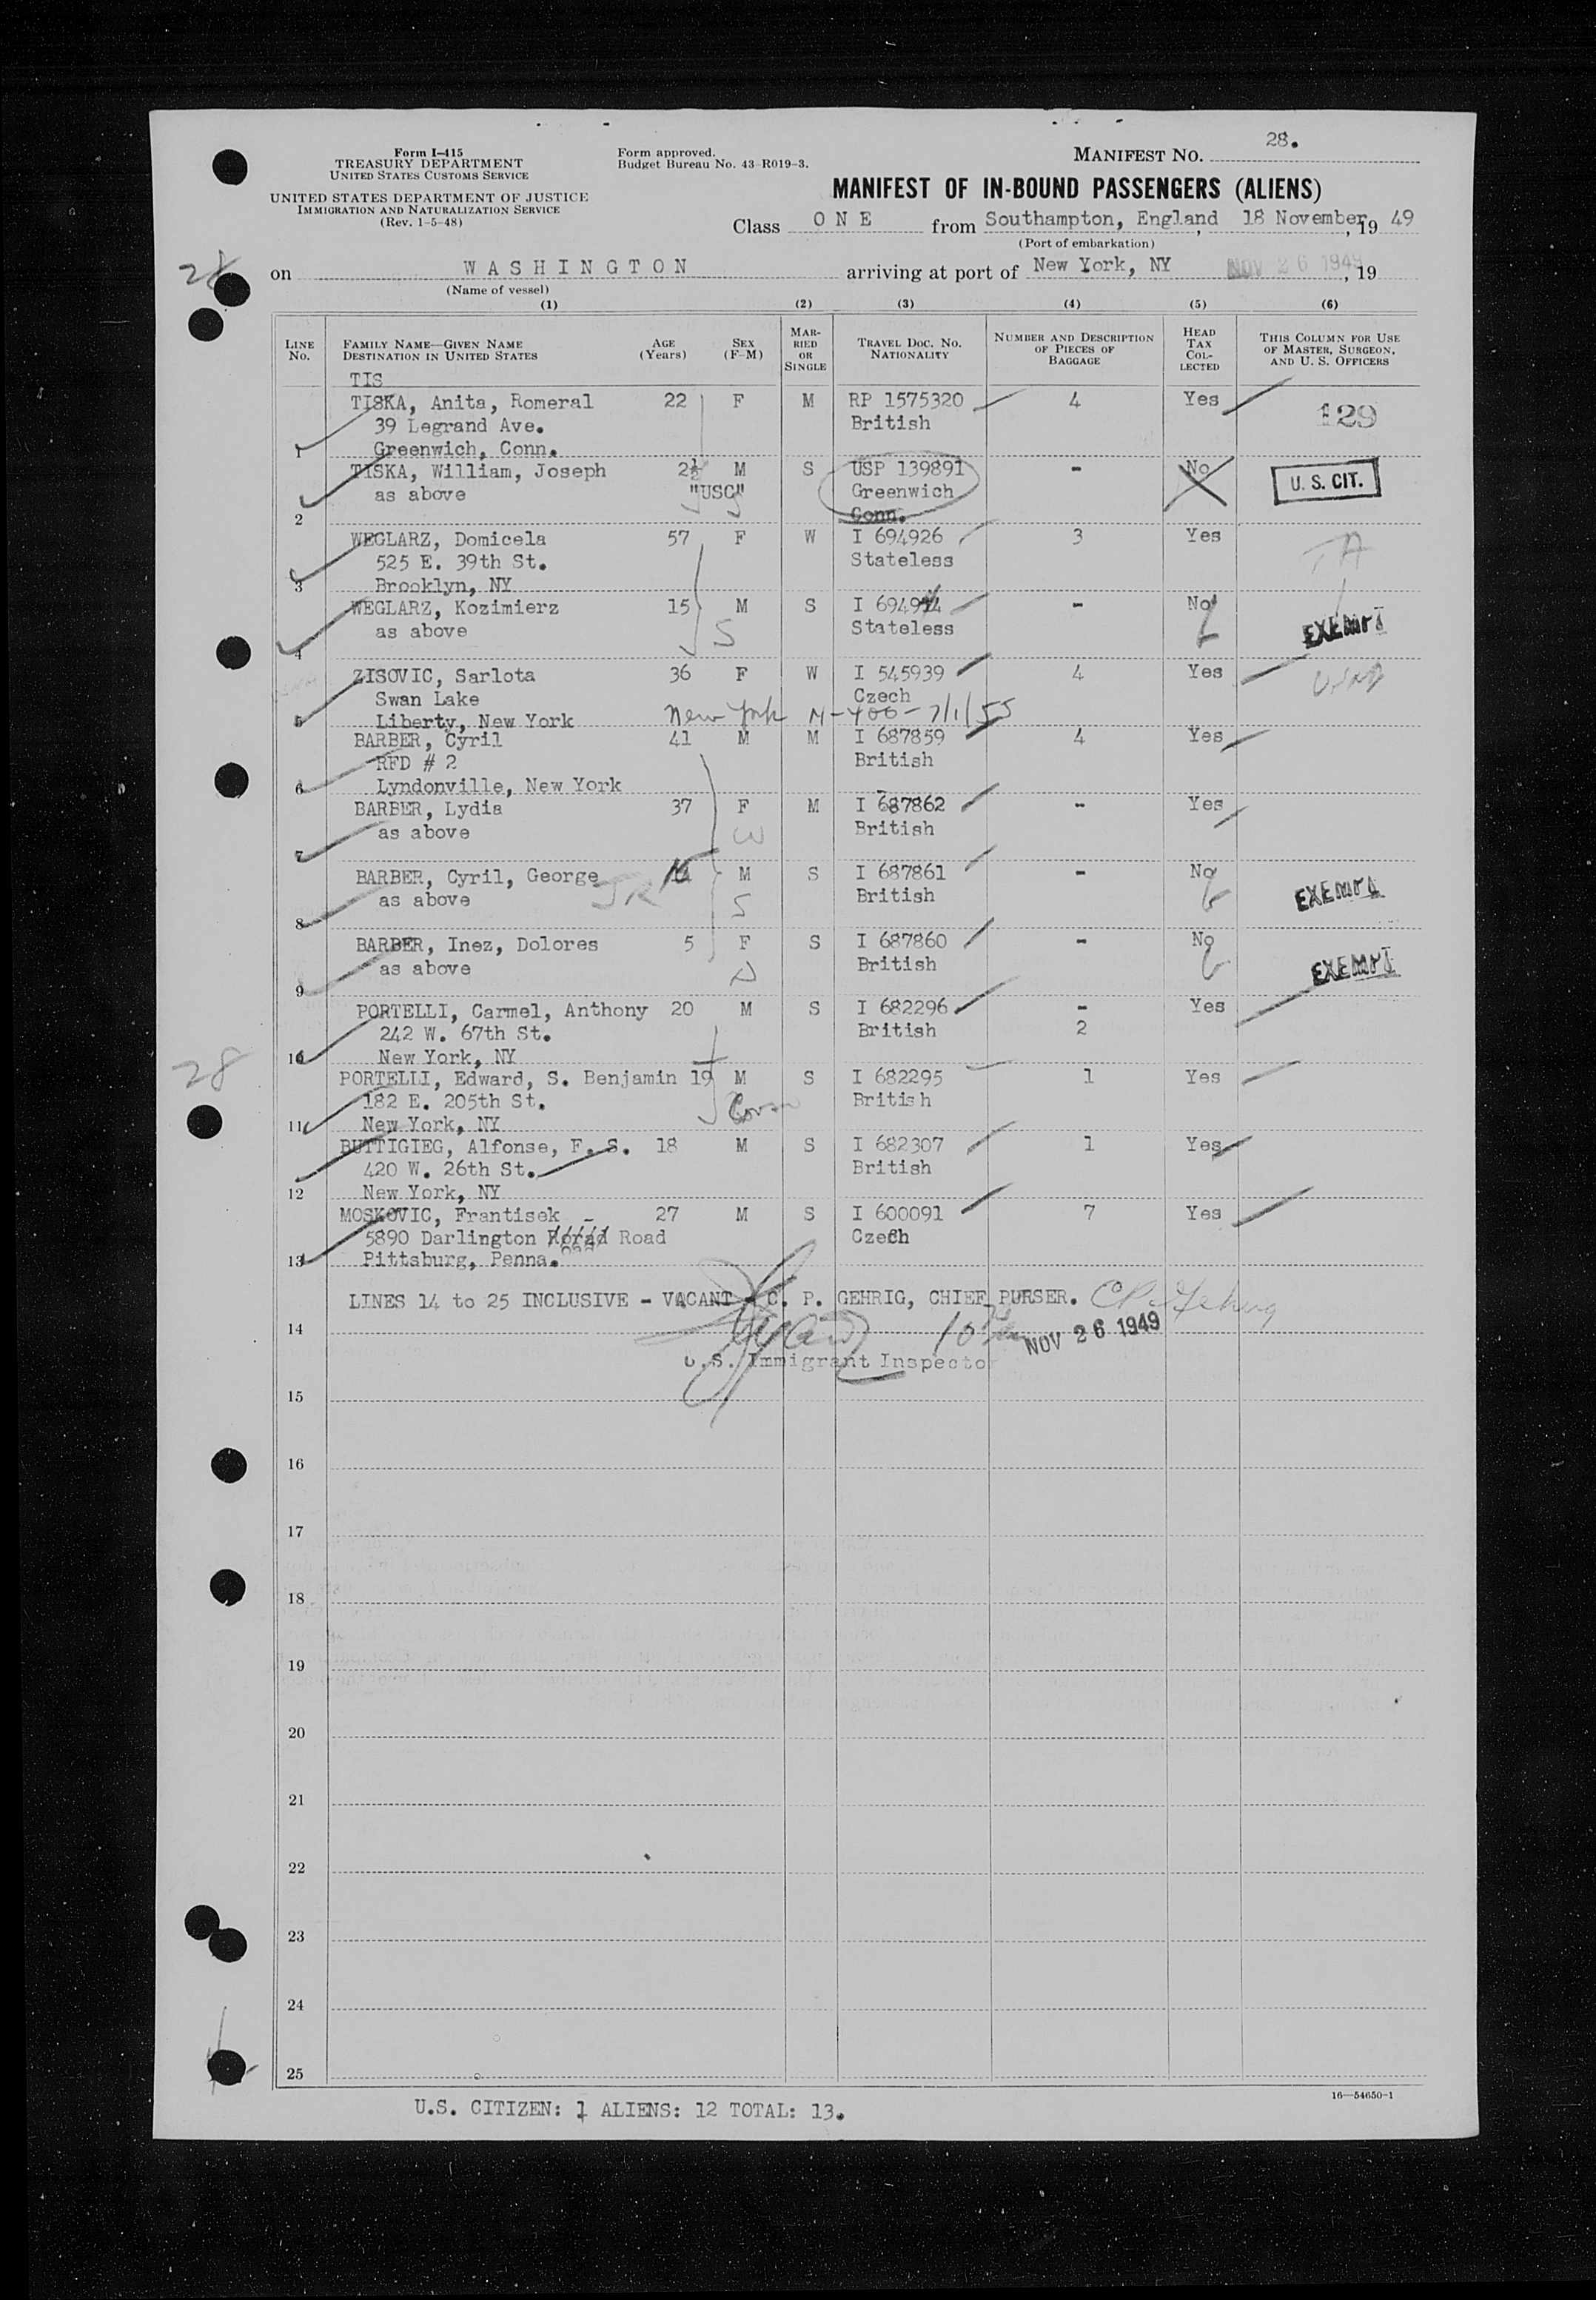 28.
Form I-415
TREASURY DEPARTMENT
UNITED STATES CUSTOMS SERVICE
UNITED STATES DEPARTMENT OF JUSTICE
IMMIGRATION AND NATURALIZATION SERVICE
(Rev. 1-5-48)
Form approved.
Budget Bureau No. 43-R019-3.
MANIFEST NO.
MANIFEST OF IN-BOUND PASSENGERS (ALIENS)
Class O N E from Southampton, England 18 November, 19 49
(Port of embarkation)
28
on W A S H I N G T O N arriving at port of New York, NY NOV 26 1949, 19
(Name of vessel)
(1) (2) (3) (4) (5) (6)
LINE NO. FAMILY NAME—GIVEN NAME DESTINATION IN UNITED STATES AGE (Years) SEX (F-M) MARRIED OR SINGLE TRAVEL DOC. NO. NATIONALITY NUMBER AND DESCRIPTION OF PIECES OF BAGGAGE HEAD TAX COLLECTED THIS COLUMN FOR USE OF MASTER, SURGEON, AND U. S. OFFICERS
TIS
TISKA, Anita, Romeral 22 F M RP 1575320 4 Yes 129
39 Legrand Ave. British
1 Greenwich, Conn.
TISKA, William, Joseph 2½ M S USP 139891 - No U. S. CIT.
as above "USC" Greenwich
2 Conn.
WEGLARZ, Domicela 57 F W I 694926 3 Yes
525 E. 39th St. Stateless TA
3 Brooklyn, NY
WEGLARZ, Kozimierz 15 M S - No
as above S Stateless EXEMPT
4
ZISOVIC, Sarlota 36 F W I 545939 4 Yes
Swan Lake Czech
5 Liberty, New York New York N-400-7/1/55
BARBER, Cyril 41 M M I 687859 4 Yes
RFD # 2 British
6 Lyndonville, New York
BARBER, Lydia 37 F M I 687862 - Yes
as above W British
7
BARBER, Cyril, George JR M S I 687861 - No
as above S British EXEMPT
8
BARBER, Inez, Dolores 5 F S I 687860 - No
as above D British EXEMPT
9
PORTELLI, Carmel, Anthony 20 M S I 682296 - Yes
242 W. 67th St. British 2
10 New York, NY
28
PORTELLI, Edward, S. Benjamin 19 M S I 682295 1 Yes
182 E. 205th St. British
11 New York, NY
BUTTIGIEG, Alfonse, F. S. 18 M S I 682307 1 Yes
420 W. 26th St. British
12 New York, NY
MOSKOVIC, Frantisek 27 M S I 600091 7 Yes
5890 Darlington Road Czech
13 Pittsburg, Penna.
LINES 14 to 25 INCLUSIVE - VACANT - C. P. GEHRIG, CHIEF PURSER. CP Gehrig
14 NOV 26 1949
U.S. Immigrant Inspector
15
16
17
18
19
20
21
22
23
24
25
16—54650-1
U.S. CITIZEN: 1 ALIENS: 12 TOTAL: 13.